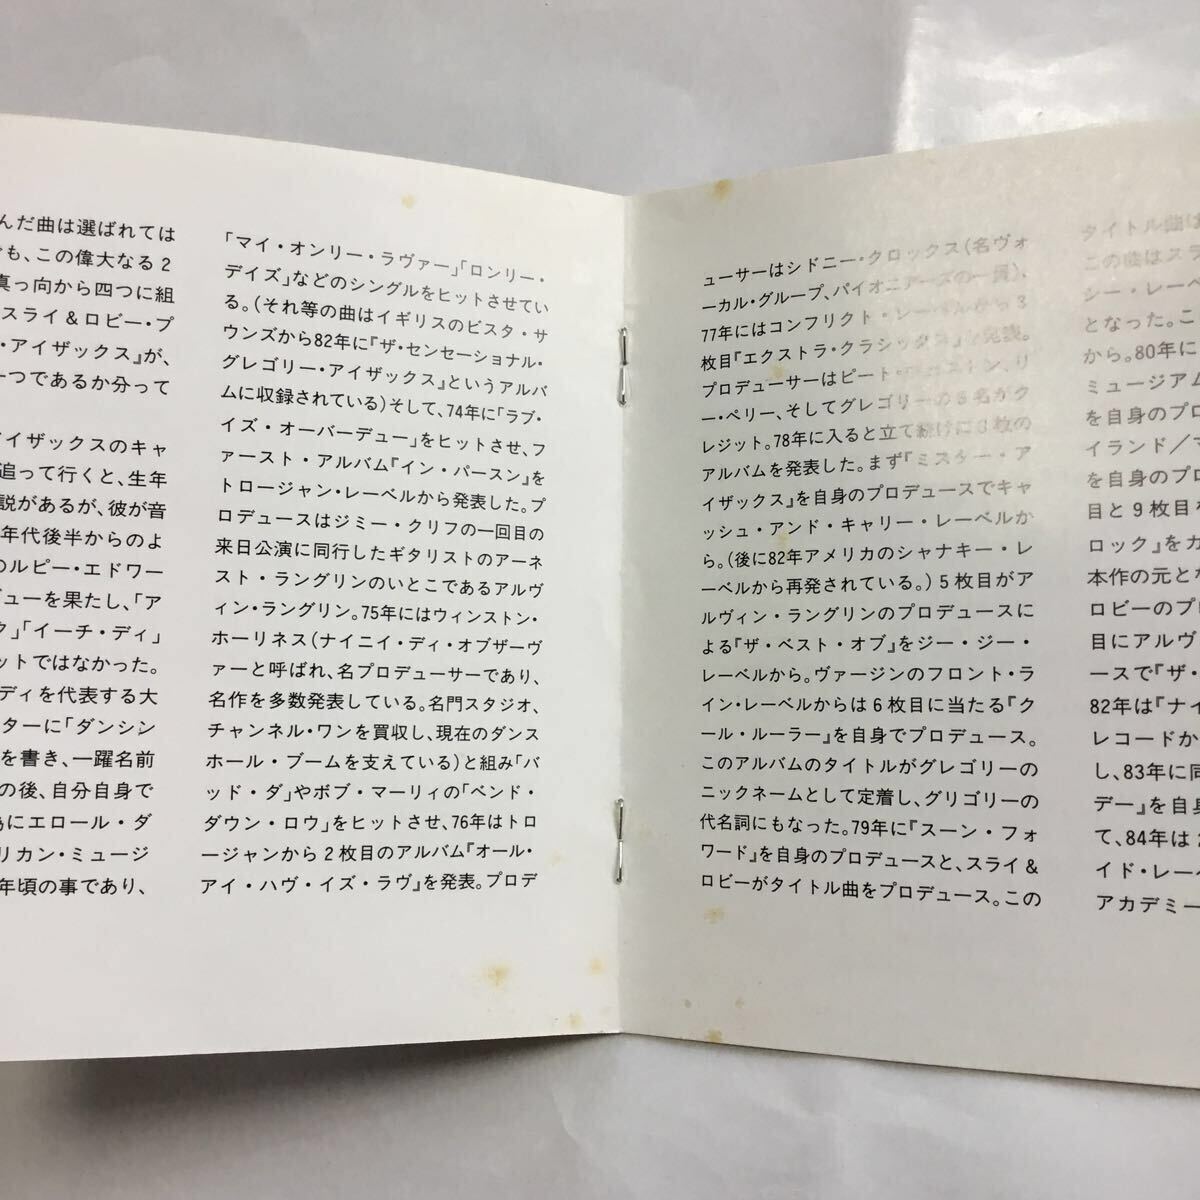 んだ曲は選ばれては
も、この偉大なる2
真っ向から四つに組
スライ&ロビー・プ
・アイザックス』が、
一つであるか分って
アイザックスのキャ
追って行くと、生年
説があるが、彼が音
年代後半からのよ
のルピー・エドワー
ビューを果たし、「ア
ク」「イーチ・ディ」
ットではなかった。
ディを代表する大
ターに「ダンシン
を書き、一躍名前
の後、自分自身で
為にエロール・ダ
リカン・ミュージ
年頃の事であり、
「マイ・オンリー・ラヴァー」「ロンリー・
デイズ」などのシングルをヒットさせてい
る。(それ等の曲はイギリスのビスタ・サ
ウンズから82年に『ザ・センセーショナル・
グレゴリー・アイザックス』というアルバ
ムに収録されている)そして、74年に「ラブ・
イズ・オーバーデュー」をヒットさせ、フ
ァースト・アルバム『イン・パースン』を
トロージャン・レーベルから発表した。プ
ロデュースはジミー・クリフの一回目の
来日公演に同行したギタリストのアーネ
スト・ラングリンのいとこであるアルヴ
ィン・ラングリン。75年にはウィンストン・
ホーリネス(ナイニイ・ディ・オブザーヴ
ァーと呼ばれ、名プロデューサーであり、
名作を多数発表している。名門スタジオ、
チャンネル・ワンを買収し、現在のダンス
ホール・ブームを支えている)と組み「バ
ッド・ダ」やボブ・マーリィの「ベンド・
ダウン・ロウ」をヒットさせ、76年はトロ
ージャンから2枚目のアルバム『オール・
アイ・ハヴ・イズ・ラヴ』を発表。プロデ
ューサーはシドニー・クロックス(名ヴォ
ーカル・グループ、パイオニアーズの一員)、
77年にはコンフリクト・レーベルから3
枚目『エクストラ・クラシックス』を発表。
プロデューサーはピート・ウエストン、リ
ー・ペリー、そしてグレゴリーの3名がク
レジット。78年に入ると立て続けに3枚の
アルバムを発表した。まず『ミスター・ア
イザックス』を自身のプロデュースでキャ
ッシュ・アンド・キャリー・レーベルか
ら。(後に82年アメリカのシャナキー・レ
ーベルから再発されている。)5枚目がア
ルヴィン・ラングリンのプロデュースに
よる『ザ・ベスト・オブ』をジー・ジー・
レーベルから。ヴァージンのフロント・ラ
イン・レーベルからは6枚目に当たる『ク
ール・ルーラー』を自身でプロデュース。
このアルバムのタイトルがグレゴリーの
ニックネームとして定着し、グリゴリーの
代名詞にもなった。79年に『スーン・フォ
ワード』を自身のプロデュースと、スライ&
ロビーがタイトル曲をプロデュース。この
タイトル曲は
この曲はスラ
シー・レーベ
となった。こ
から。80年に
ミュージアム
を自身のプロ
イランド/マ
を自身のプロ
目と9枚目を
ロック』をカ
本作の元とな
ロビーのプロ
目にアルヴ
ースで『ザ・
82年は『ナイ
レコードか
し、83年に同
デー』を自身
て、84年は
イド・レーベ
アカデミー